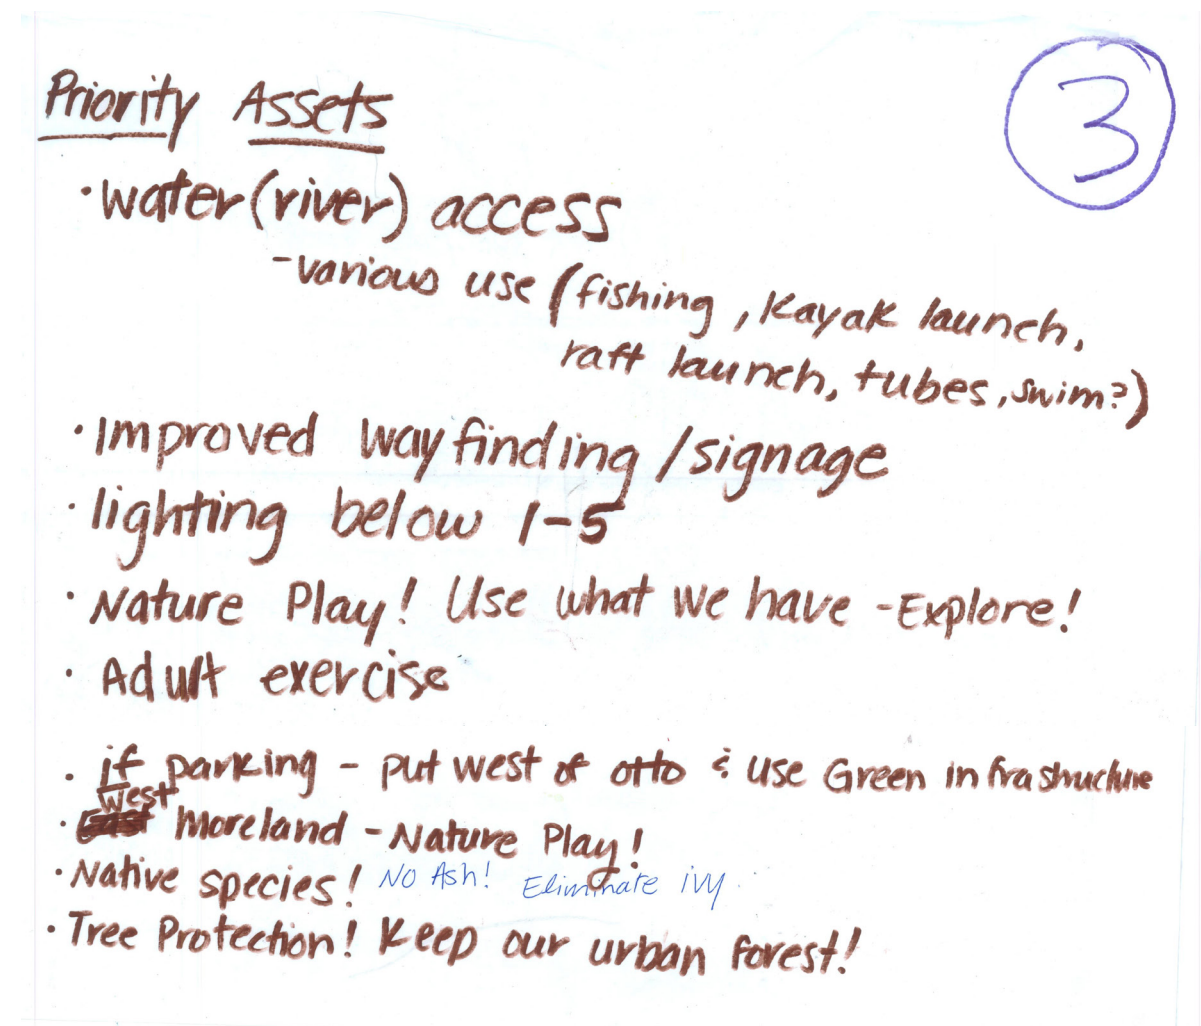 Priority Assets
3
· water (river) access
- various use (fishing, kayak launch,
raft launch, tubes, swim?)
· Improved way finding / signage
· lighting below I-5
· Nature Play! Use what we have - Explore!
· Adult exercise
· if parking - put west of otto & use Green infrastructure
west
· East Moreland - Nature Play!
· Native species! No Ash! Eliminate ivy.
· Tree Protection! Keep our urban forest!